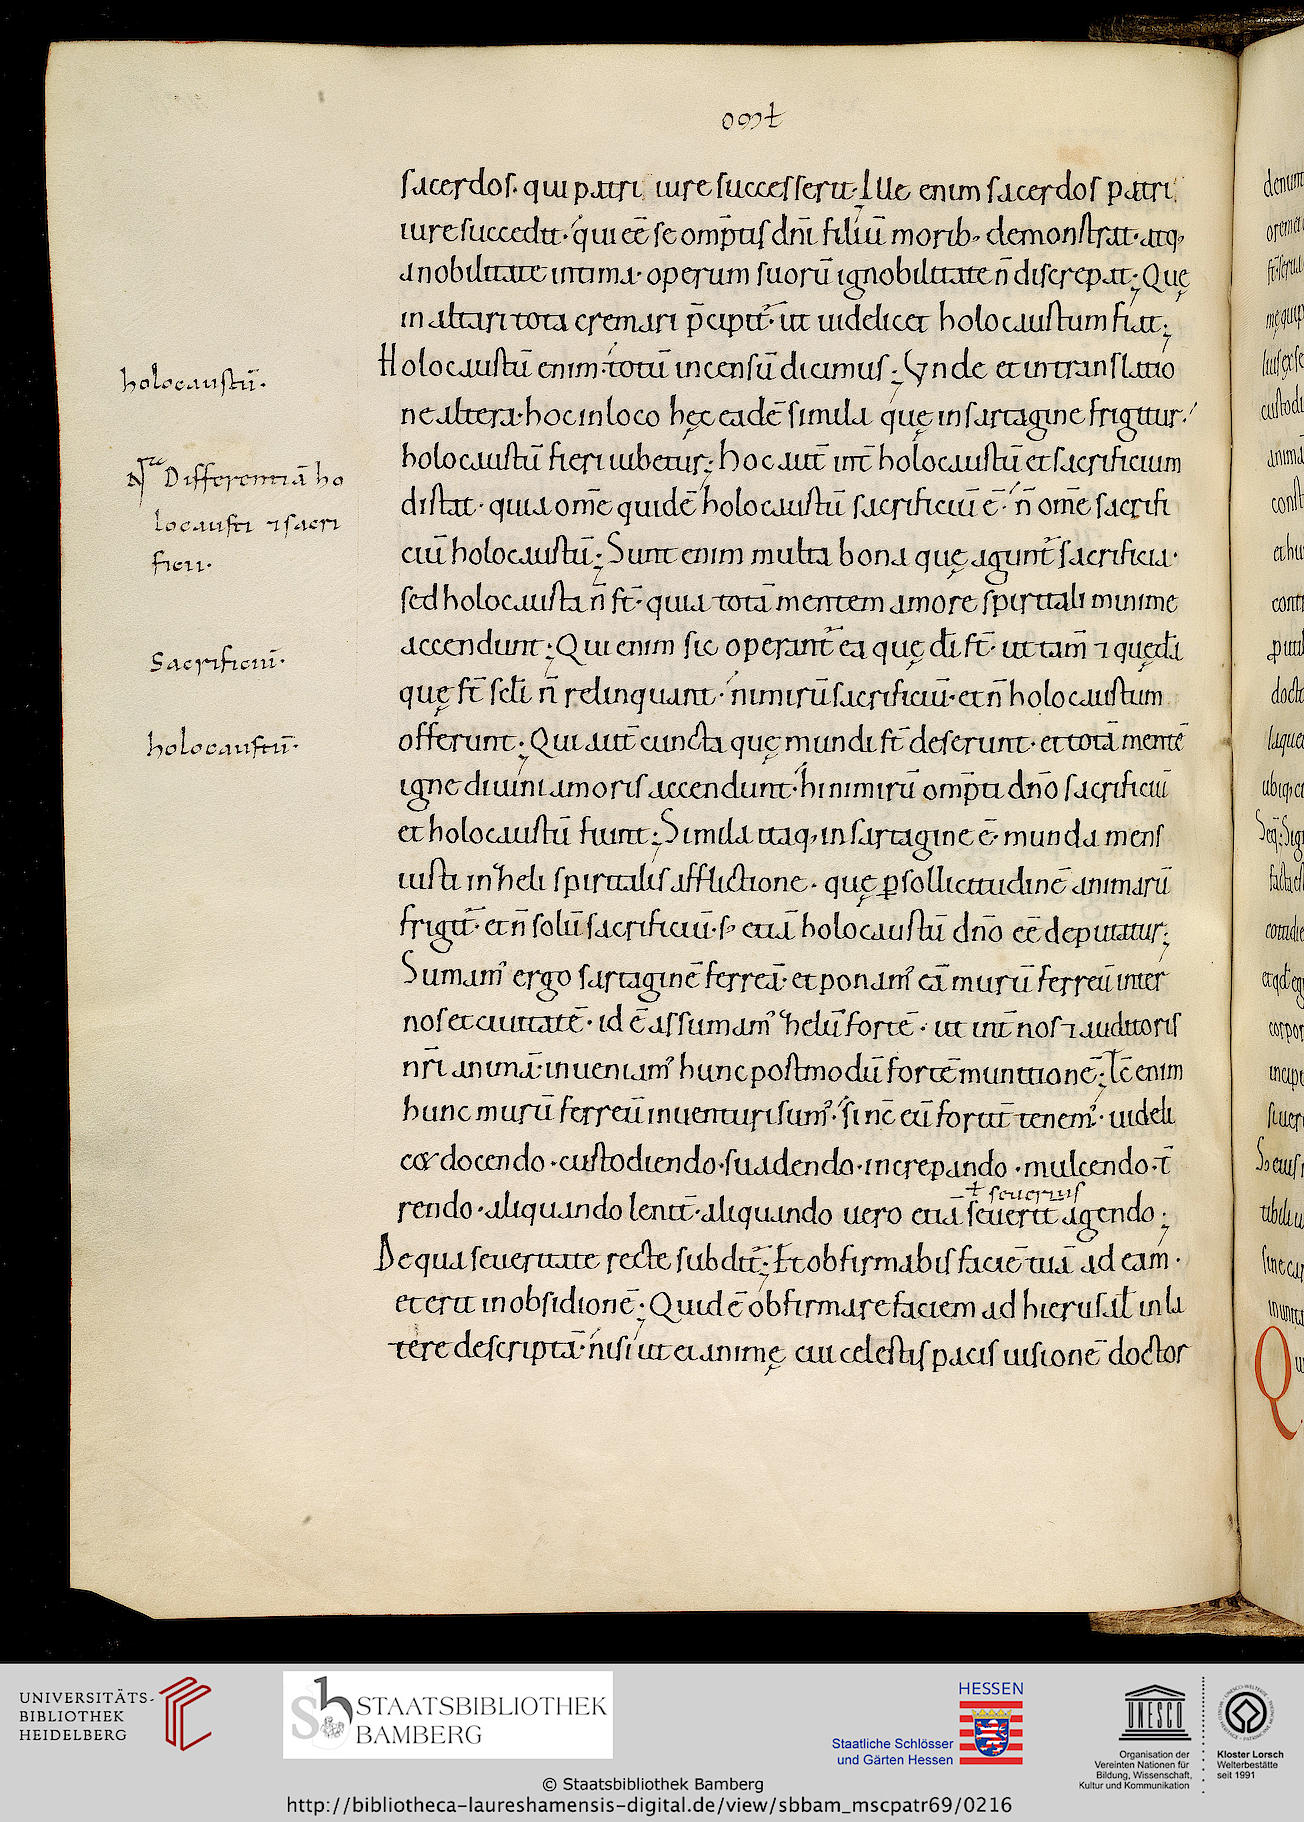 sacerdos. qui patri iure successerit; Ille enim sacerdos patri
iure succedit. qui eē se om̄ptis dn̄i filiū morib; demonstrat. atq;
a nobilitate intima. operum suorū ignobilitate n̄ discrepat; Quę
in altari tota cremari p̄cipit̄. ut uidelicet holocaustum fiat;
holocaustū.
Holocaustū enim. totū incensū dicimus; Unde et in translatio
ne altera. hoc in loco hęc eadē simila quę in sartagine frigitur.
holocaustū fieri iubetur; hoc aut̄ int̄ holocaustū et sacrificium
Differentiā ho
locausti ⁊ sacri
ficii.
distat. quia om̄e quidē holocaustū sacrificiū ē. n̄ om̄e sacrifi
ciū holocaustū; Sunt enim multa bona quę agunt̄ sacrificia.
sed holocausta n̄ st̄. quia totā mentem amore spiritali minime
Sacrificiū.
accendunt; Qui enim sic operant̄ ea quę dī st̄. ut tam̄ ⁊ quędā
quę st̄ sc̄li n̄ relinquant. nimirū sacrificiū. et n̄ holocaustum
holocaustū.
offerunt; Qui aut̄ cuncta quę mundi st̄ deserunt. et totā mentē
igne diuini amoris accendunt. hi nimirū om̄pti dn̄o sacrificiū
et holocaustū fiunt; Simila itaq; in sartagine ē. munda mens
iusti in heli spiritalis afflictione. quę ꝑ sollicitudinē animarū
frigit̄. et n̄ solū sacrificiū. s; etiā holocaustū dn̄o eē deputatur;
Sumam' ergo sartaginē ferreā. et ponam' eā murū ferreū inter
nos et ciuitatē. id ē assumam' helū fortē. ut int̄ nos ⁊ auditoris
nr̄i animā. inueniam' hunc postmodū fortē munitionē; Tc̄ enim
hunc murū ferreū inuenturi sum'. si nc̄ eū fortit̄ tenem'. uideli
cet docendo. custodiendo. suadendo. increpando. mulcendo. t̄
ł seuerius
rendo. aliquando lenit̄. aliquando uero etiā seuerit̄ agendo;
De qua seueritate recte subdit̄; Et obfirmabis faciē tuā ad eam.
et erit in obsidionē; Quid ē obfirmare faciem ad hierusał in la
tere descriptā. nisi ut ei animę cui celestis pacis uisionē doctor
UNIVERSITÄTS-
BIBLIOTHEK
HEIDELBERG
STAATSBIBLIOTHEK
BAMBERG
HESSEN
Staatliche Schlösser
und Gärten Hessen
UNESCO
Organisation der
Vereinten Nationen für
Bildung, Wissenschaft,
Kultur und Kommunikation
Kloster Lorsch
Welterbestätte
seit 1991
© Staatsbibliothek Bamberg
http://bibliotheca-laureshamensis-digital.de/view/sbbam_mscpatr69/0216